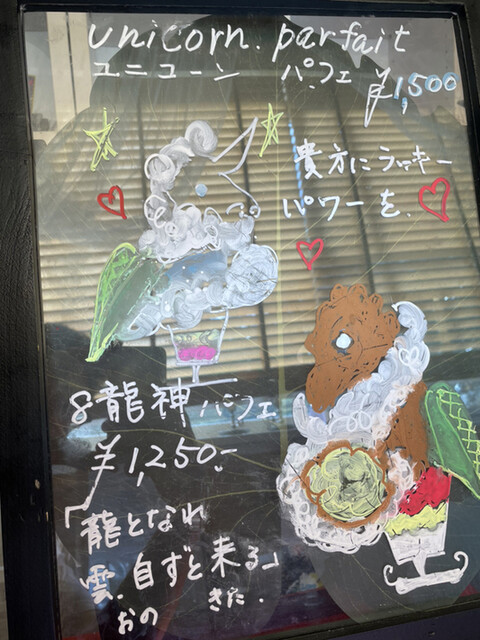 unicorn. parfait
ユニコーン パフェ ¥1,500
貴方にラッキー
パワーを.
8龍神パフェ
¥1,250.-
「龍となれ
雲.自ずと来る」
おの きた.